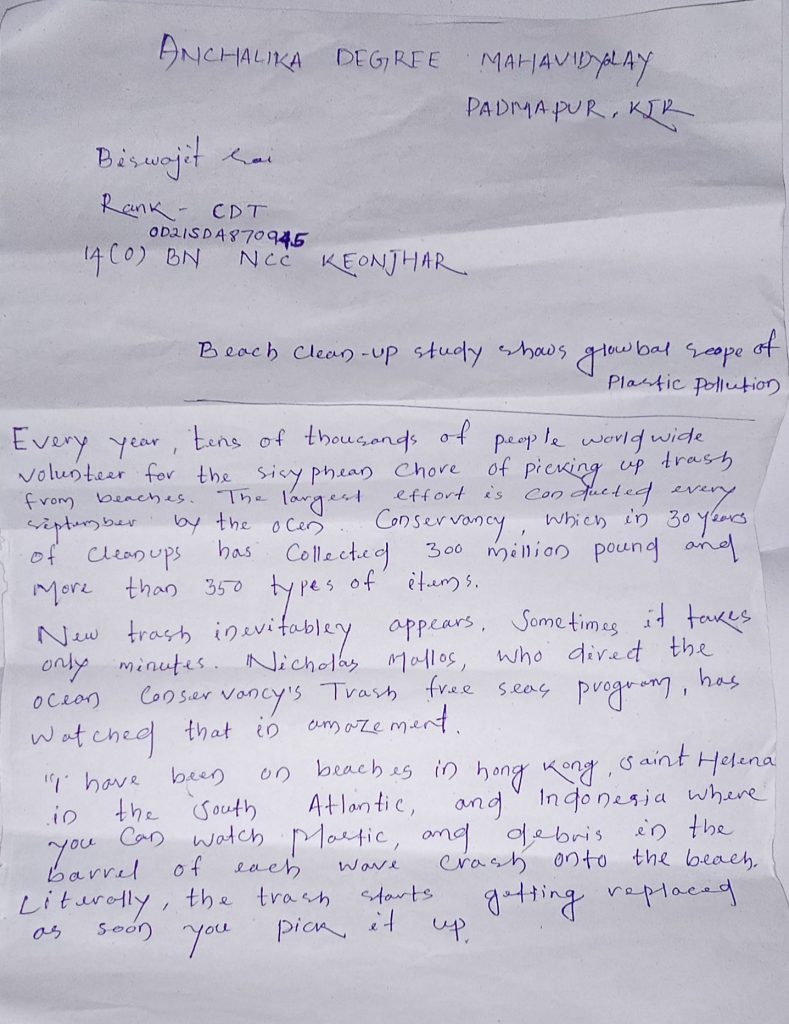 ANCHALIKA DEGREE MAHAVIDYALAY
PADMAPUR, KJR
Biswajit
Rank - CDT
OD21SDA870945
14(O) BN NCC KEONJHAR
Beach Clean-up study shows glowbal scope of
Plastic Pollution
Every year, tens of thousands of people world wide
volunteer for the sisyphean chore of picking up trash
from beaches. The largest effort is conducted every
september by the ocen Conservancy, which in 30 years
of cleanups has Collected 300 million pound and
more than 350 types of items.
New trash inevitabley appears. Sometimes it takes
only minutes. Nicholas Mallos, who direct the
ocean Conservancy's Trash free seas program, has
watched that in amazement.
"I have been on beaches in hong Kong, Saint Helena
in the South Atlantic, and Indonesia where
you can watch plastic, and debris in the
barrel of each wave crash onto the beach.
Literally, the trash starts getting replaced
as soon you pick it up.